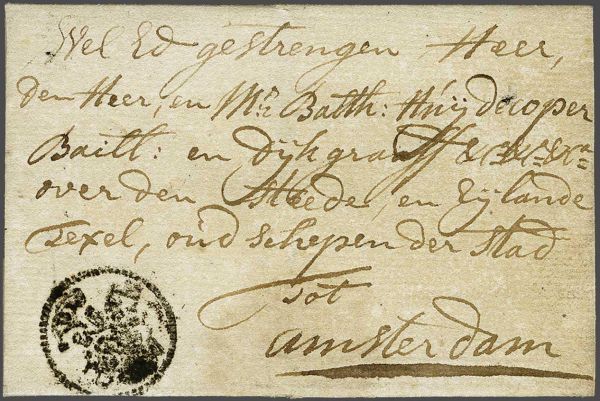 Wel Ed gestrengen Heer,
den Heer, en Mr: Balth: Húijdecoper
Baill: en Dijkgraaff &c:&c:&ca=
over den Steede, en Eijlande
Texel, oúd schepen der stad
Tot
Amsterdam